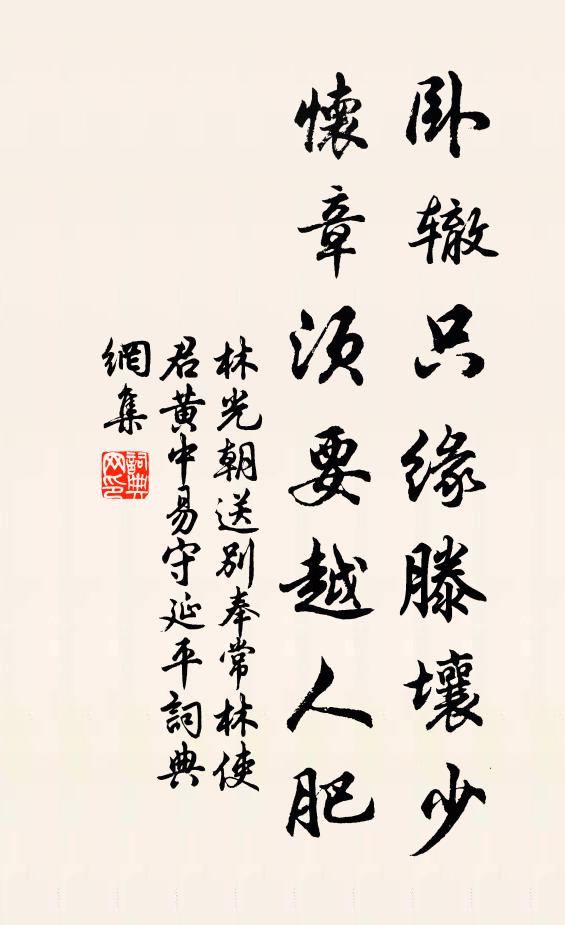 卧辙只缘滕壤少
懷章须要越人肥
林光朝送别奉常林使
君黄中易守延平詞典
網集
詞典
网印